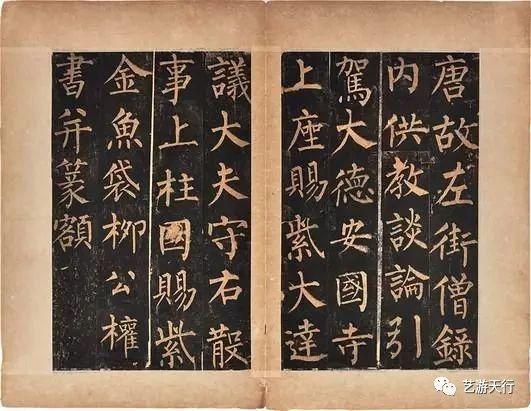 唐故左街僧錄
内供教談論引
駕大德安國寺
上座賜紫大達
議大夫守右散
事上柱國賜紫
金魚袋柳公權
書并篆額
艺游天行